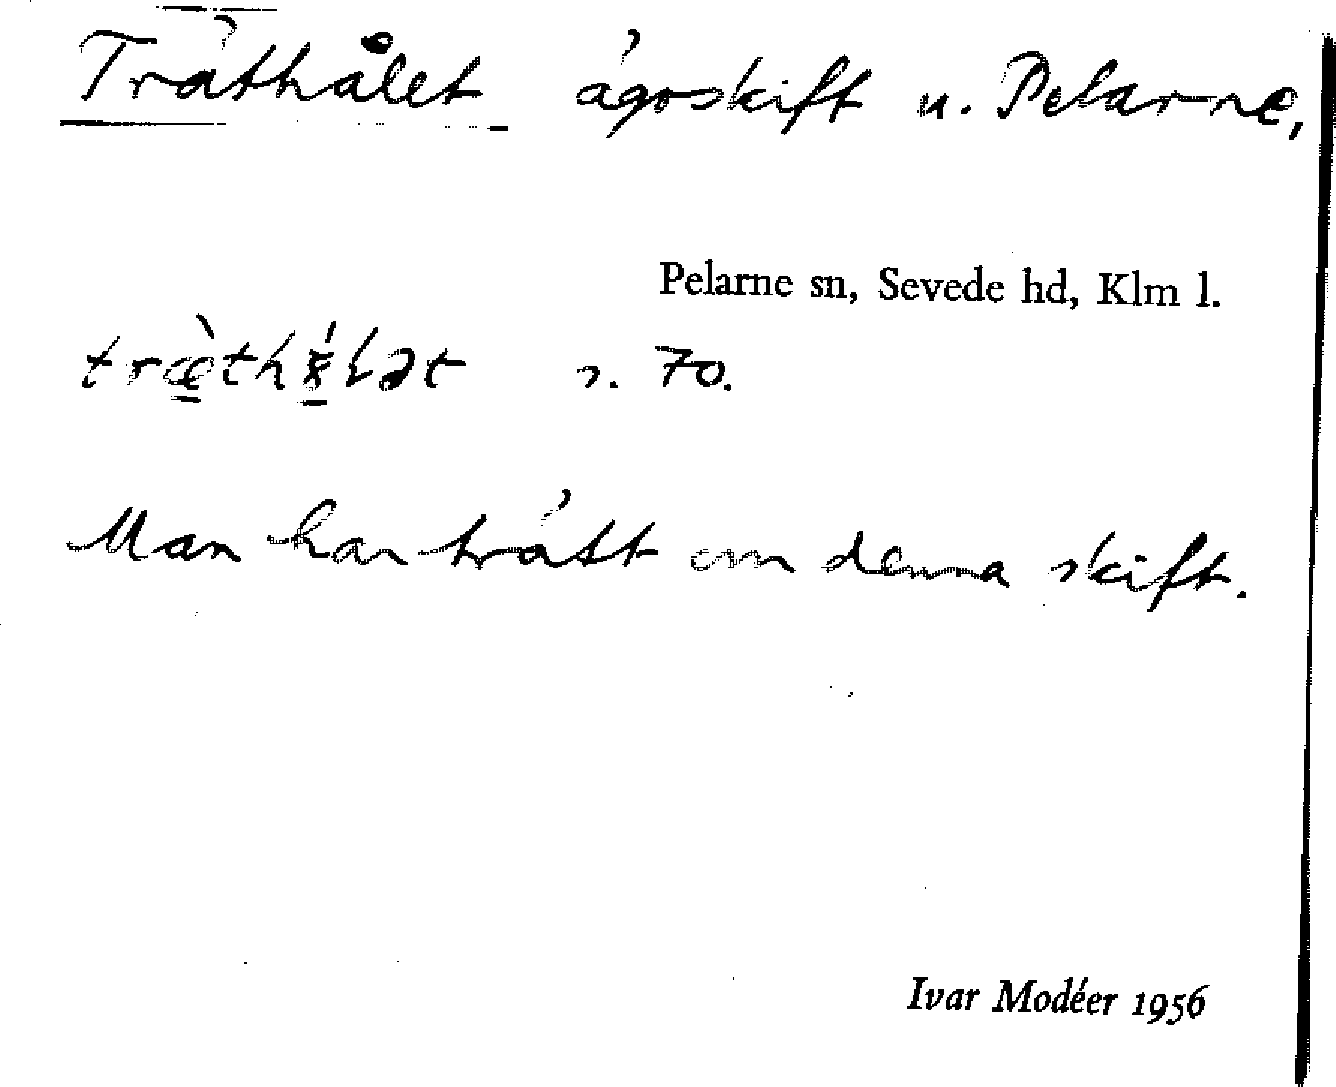 Träthålet ägoskift u. Pelarne,
Pelarne sn, Sevede hd, Klm l.
s. 70.
Man har trätt om denna skift.
Ivar Modéer 1956